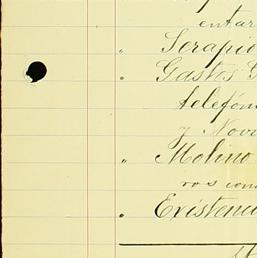 entar
" Serapio
" Gastos G
telefón
y Novi
" Molino
ros con
" Existenci